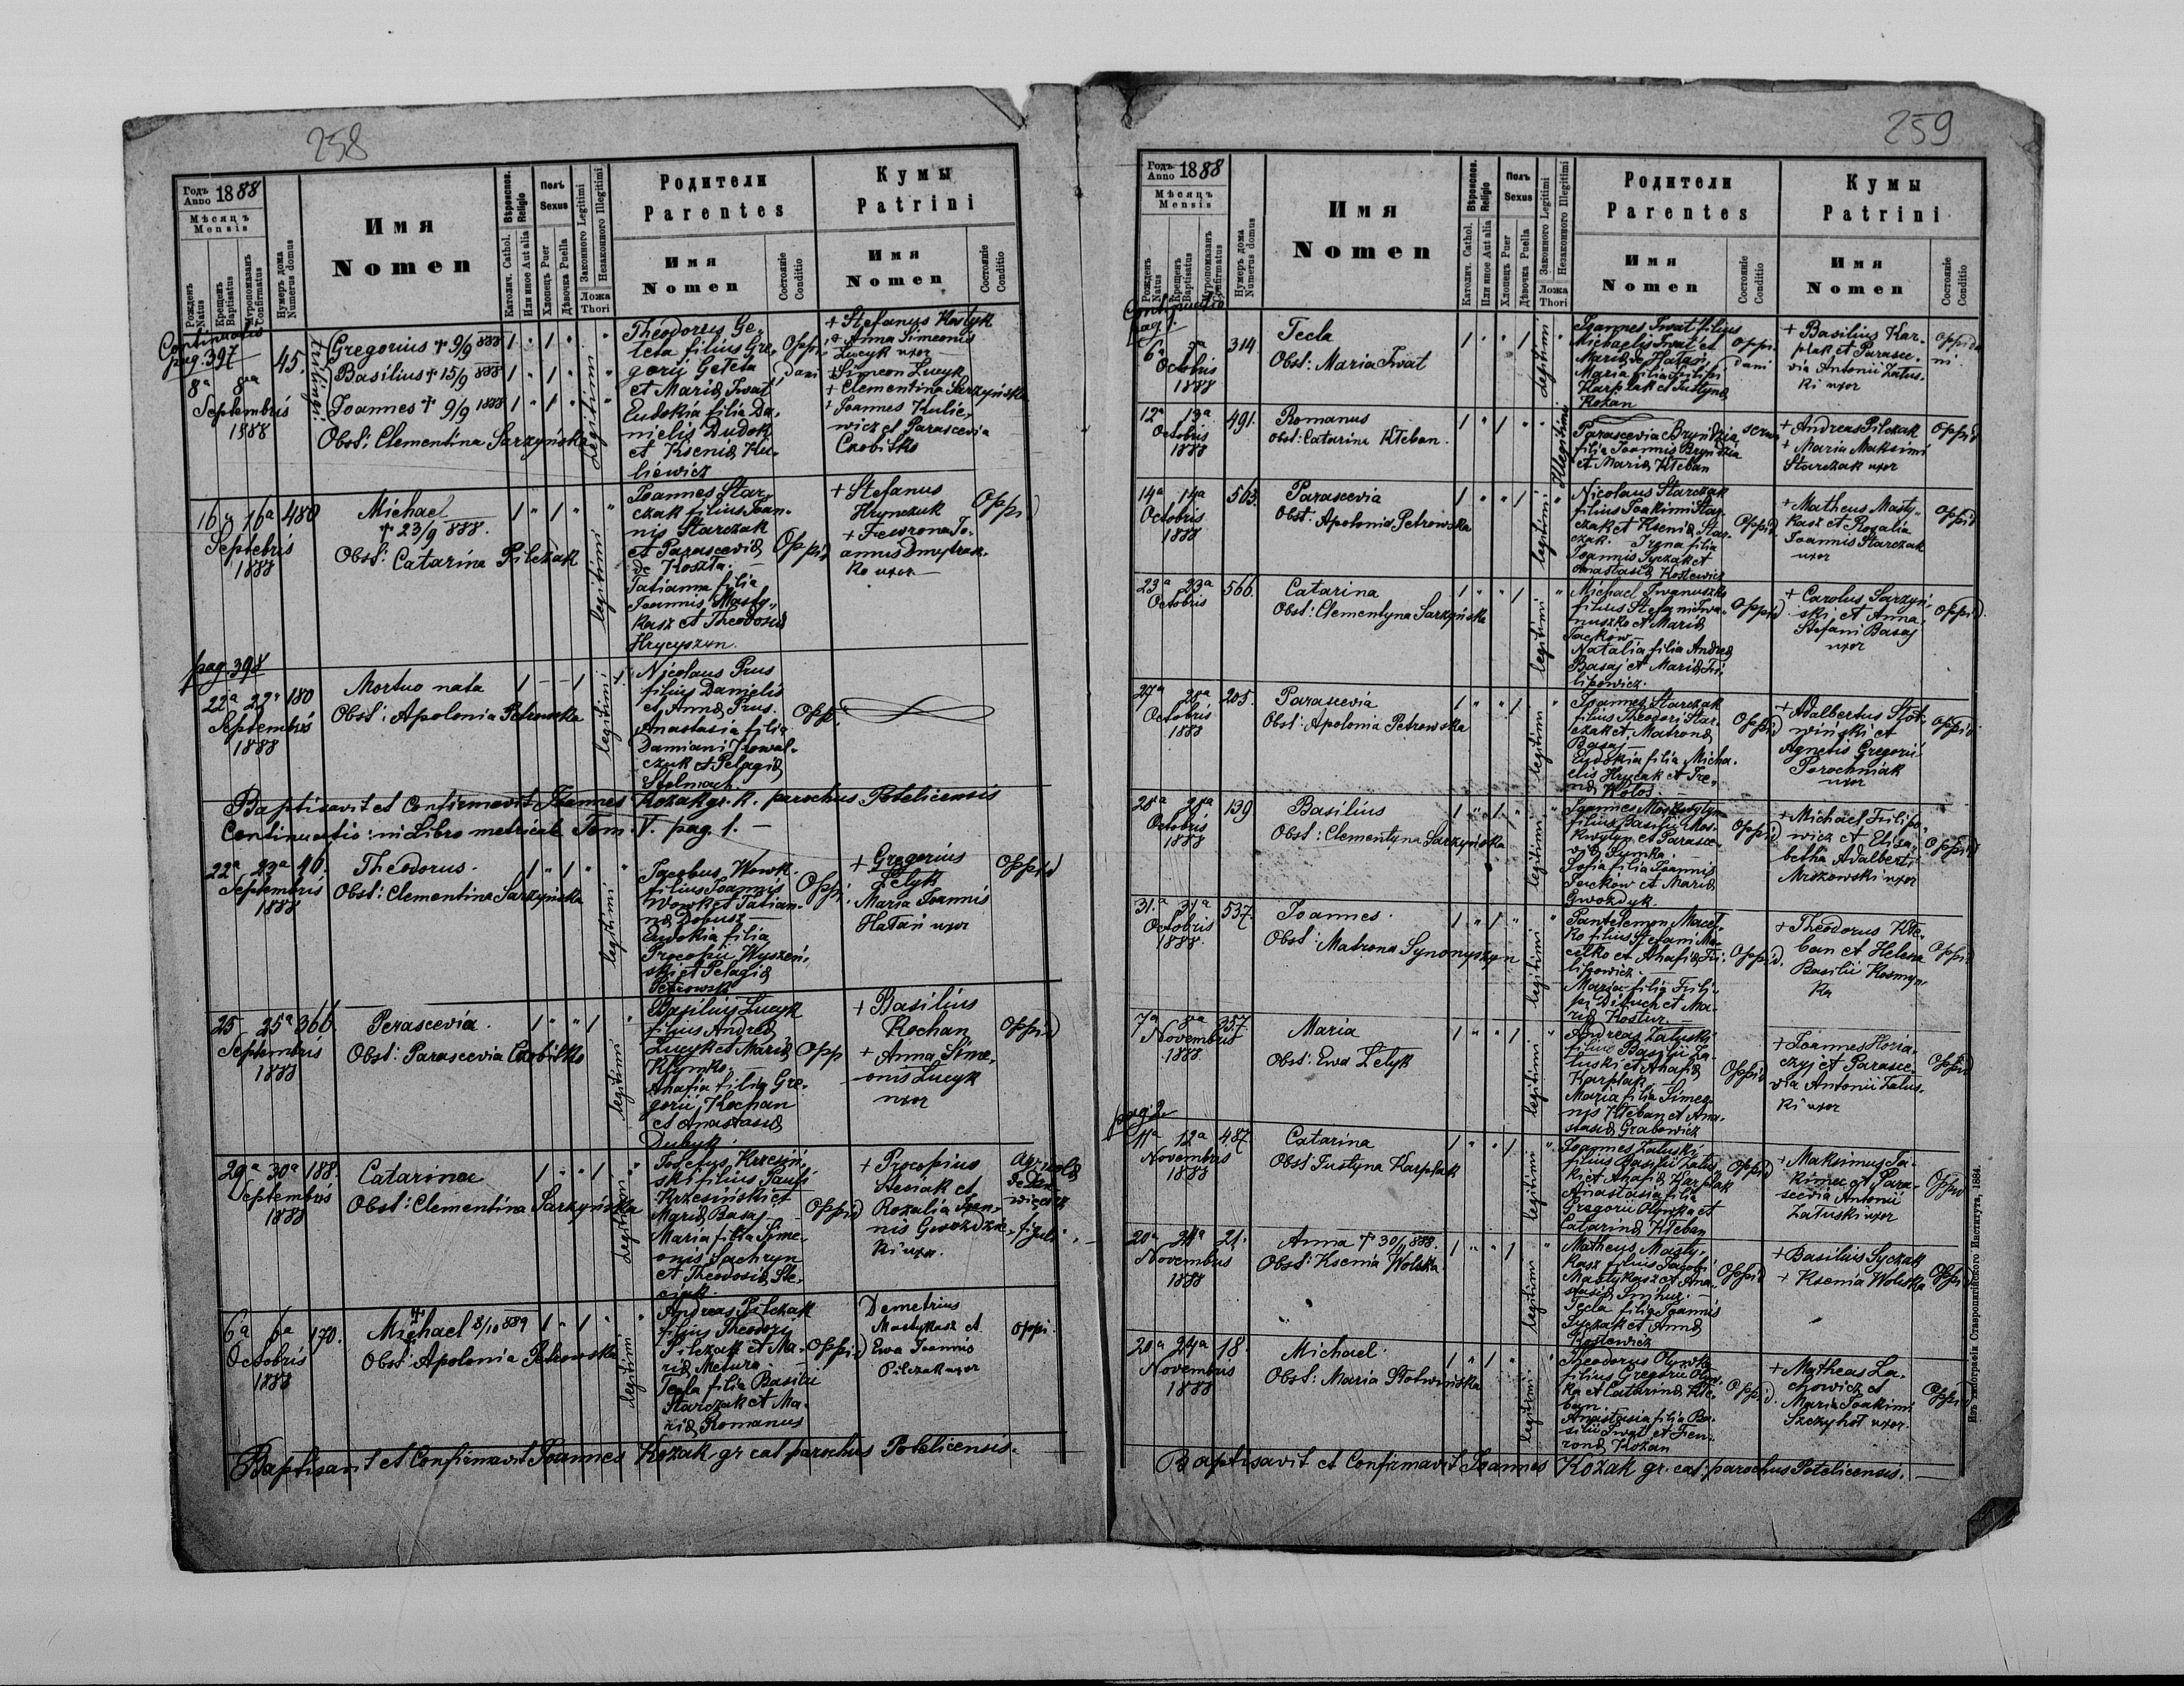 258
Годъ
Anno 1888
Мѣсяцъ
Mensis
Рожденъ
Natus
Крещенъ
Baptisatus
Муропомазанъ
Confirmatus
Нумеръ дома
Numerus domus
Имя
Nomen
Вѣроиспов.
Religio
Католич. Cathol.
Или иное Aut alia
Полъ
Sexus
Хлопецъ Puer
Дѣвочка Puella
Законного Legitimi
Незаконного Illegitimi
Ложа
Thori
Родители
Parentes
Имя
Nomen
Состояніе
Conditio
Кумы
Patrini
Имя
Nomen
Состояніе
Conditio
Continuatio
pag. 397
8a 8va 45.
Septembris
1888
Gregorius † 9/9 888
Basilius † 15/9 888
Joannes † 9/9 1888
Obst: Clementina Sarzyńska
legitimi
Theodorus Ge-
leta filius Gre-
gorii Geleta
et Mariæ Iwat
Eudokia filia Da-
nielis Dudok
et Kseniæ Ku-
liewicz
Oppi-
dani
+ Stefanus Kostyk
Anna Simeonis
Lucyk uxor
+ Simeon Lucyk
+ Clementina Sarzyńska
+ Joannes Kulie-
wicz et Parascevia
Czobitko
16a 16a 480
Septebris
1888
Michael
† 23/9 888.
Obst: Catarina Pilczak
legitimi
Joannes Star-
czak filius Joan-
nis Starczak
et Parasceviæ
de Koszta.
Tatianna filia
Joannis Masty-
kasz et Theodosiæ
Hrycyszyn.
Oppid
+ Stefanus
Hrynczuk
+ Fewrona Jo-
annis Dmytrak-
ko uxor
Oppi)
pag. 398
22a 22a 180
Septembris
1888
Mortuo nata
Obst: Apolonia Petrowska
legitimi
Nicolaus Prus
filius Danielis
et Annæ Prus.
Anastasia filia
Damiani Kowal-
czuk et Pelagiæ
Stelmach
Opp:
Baptisavit et Confirmavit Joannes Kozak gr. k. parochus Potelicensis
Continuatio: in Libro metricali Tom. V. pag. 1. —
22a 23a 46.
Septembris
1888
Theodorus.
Obst: Clementina Sarzyńska
legitimi
Jacobus Wowk
filius Joannis
Wowk et Tatian-
næ Dobusz
Eudokia filia
Procopii Wyszeń-
ski et Pelagiæ
Petrowsk
Oppi.
+ Gregorius
Lelyk
Maria Joannis
Hałań uxor
Oppid
25 25a 366.
Septembris
1888
Perascevia.
Obst: Parascevia Czobitko
legitimi
Basilius Lucyk
filius Andreæ
Lucyk et Mariæ
Klymko.
Ahafia filia Gre-
gorii Kochan
et Anastasiæ
Dubyk.
Opp
+ Basilius
Kochan
+ Anna Sime-
onis Lucyk
uxor
Oppid
29a 30a 188.
Septembris
1888
Catarina
Obst: Clementina Sarzyńska
legitimi
Josefus Krzesiń-
ski filius Pauli
Krzesiński et
Mariæ Basaj
Maria filia Sime-
onis Sachryn
et Theodosiæ Ste-
ciak.
Oppid
+ Procopius
Steciak et
Rozalia Joan-
nis Gwozdzie-
ki uxor.
figuli
6a 6a 170.
Octobris
1888
Michael † 8/10 889
Obst: Apolonia Petrowska
legitimi
Andreas Pilczak
filius Theodori
Pilczak et Ma-
riæ Metura.
Tecla filia Basilii
Starczak et Ma-
riæ Romanus
Oppid
Demetrius
Mastykasz et
Ewa Joannis
Pilczak uxor
Oppi.
Baptisavit et Confirmavit Joannes Kozak gr cat parochus Potelicensis.
259
Годъ
Anno 1888
Мѣсяцъ
Mensis
Рожденъ
Natus
Крещенъ
Baptisatus
Муропомазанъ
Confirmatus
Нумеръ дома
Numerus domus
Имя
Nomen
Вѣроиспов.
Religio
Католич. Cathol.
Или иное Aut alia
Полъ
Sexus
Хлопецъ Puer
Дѣвочка Puella
Законного Legitimi
Незаконного Illegitimi
Ложа
Thori
Родители
Parentes
Имя
Nomen
Состояніе
Conditio
Кумы
Patrini
Имя
Nomen
Состояніе
Conditio
Continuatio
pag. 1.
6a 7a 314.
Octobris
1888
Tecla
Obst: Maria Iwat
legitimi
Joannes Iwat filius
Michaelis Iwat et
Mariæ de Hałań,
Maria filia Filipi
Karplak et Justynæ
Kozan
Oppi-
dani
+ Basilius Kar-
plak et Parasce-
via Antonii Załus-
ki uxor
Oppida
ni.
12a 13a 491.
Octobris
1888
Romanus
Obst: Catarina Kłeban.
Illegitimi
Parascevia Bryndzia
filia Joannis Bryndzia
et Mariæ Kłeban
+ Andreas Pilczak
+ Maria Maksimi
Starczak uxor
Oppid
14a 14a 563.
Octobris
1888
Parascevia
Obst: Apolonia Petrowska
legitimi
Nicolaus Starczak
filius Joakimi Star-
czak et Kseniæ Star-
czak. Irena filia
Joannis Syczak et
Anastasiæ Kostewicz
Oppid
+ Matheus Masty-
kasz et Rozalia
Joannis Starczak
uxor
Oppid
23a 23a 566.
Octobris
Catarina
Obst: Clementyna Sarzyńska
legitimi
Michael Iwanuszko
filius Stefani Iwa-
nuszko et Mariæ
Jackow
Natalia filia Andreæ
Basaj et Mariæ Fi-
lipowicz.
Oppid
+ Carolus Sarzyń-
ski, et Anna
Stefani Basaj
uxor
Oppid.
27a 28a 205.
Octobris
1888
Parascevia
Obst: Apolonia Petrowska
legitimi
Joannes Starczak
filius Theodori Star-
czak et Matronæ
Basaj
Eudokia filia Micha-
elis Hrycak et Ire-
næ Wolos.
Oppid
+ Adalbertus Słot-
wiński et
Agnetis Gregorii
Porochniak
uxor
Oppid
28a 28a 139
Octobris
1888
Basilius
Obst: Clementyna Sarzyńska
legitimi
Joannes Moskwytyn
filius Basilii Mos-
kwytyn et Parasce-
viæ Synka.
Sofia filia Joannis
Jackow et Mariæ
Gwozdyk.
Oppid
+ Michael Filipo-
wicz et Elisa-
betha Adalberti
Mrozowski uxor
Oppid
31.a 31a 537.
Octobris
1888.
Joannes.
Obst: Matrona Synonyszyn
legitimi
Pantelemon Macel-
ko filius Stefani Ma-
celko et Ahafiæ Fi-
lipowicz.
Maria filia Fili-
pi Diduch et Ma-
riæ Kostur.
Oppid.
+ Theodorus Kłe-
ban et Helena
Basilii Kosmyn-
ka
Oppid
7a 8va 357.
Novembris
1888
Maria
Obst: Ewa Lelyk
legitimi
Andreas Załuski
filius Basilii Za-
łuski et Ahafiæ
Karplak.
Maria filia Simeo-
nis Kłeban et Ana-
stasiæ Grabowicz
Oppid
+ Joannes Horia-
czyj et Parasce-
via Antonii Załus-
ki uxor
Oppid
pag 2
11a 12a 487.
Novembris
1888
Catarina
Obst: Justyna Karplak
legitimi
Joannes Załuski
filius Basilii Załus-
ki et Ahafiæ Karplak
Anastasia filia
Gregorii Olynka et
Catarinæ Kłeban
Oppid
+ Maksimus Ja-
kimec et Para-
scevia Antonii
Załuski uxor
Oppid
20a 21a 21.
Novembris
1888
Anna † 30/11 888.
Obst: Ksenia Wolska.
legitimi
Matheus Masty-
kasz filius Jacobi
Mastykasz et Ana-
stasiæ Smihur.
Tecla filia Joannis
Syczak et Annæ
Kostewicz
Oppid
+ Basilius Syczak
+ Ksenia Wolska
Oppid
20a 24a 18.
Novembris
1888
Michael.
Obst: Maria Słotwińska
legitimi
Theodorus Olynka
filius Gregorii Olyn-
ka et Catarinæ Kłe-
ban.
Anastasia filia Ba-
silii Iwat et Few-
ronæ Kozan
Oppid.
+ Matheas La-
chowicz et
Maria Joakimi
Szczyhot uxor.
Oppid
Baptisavit et Confirmavit Joannes Kozak gr. cat. parochus Potelicensis.
Изъ типографіи Ставропигійского Института, 1884.